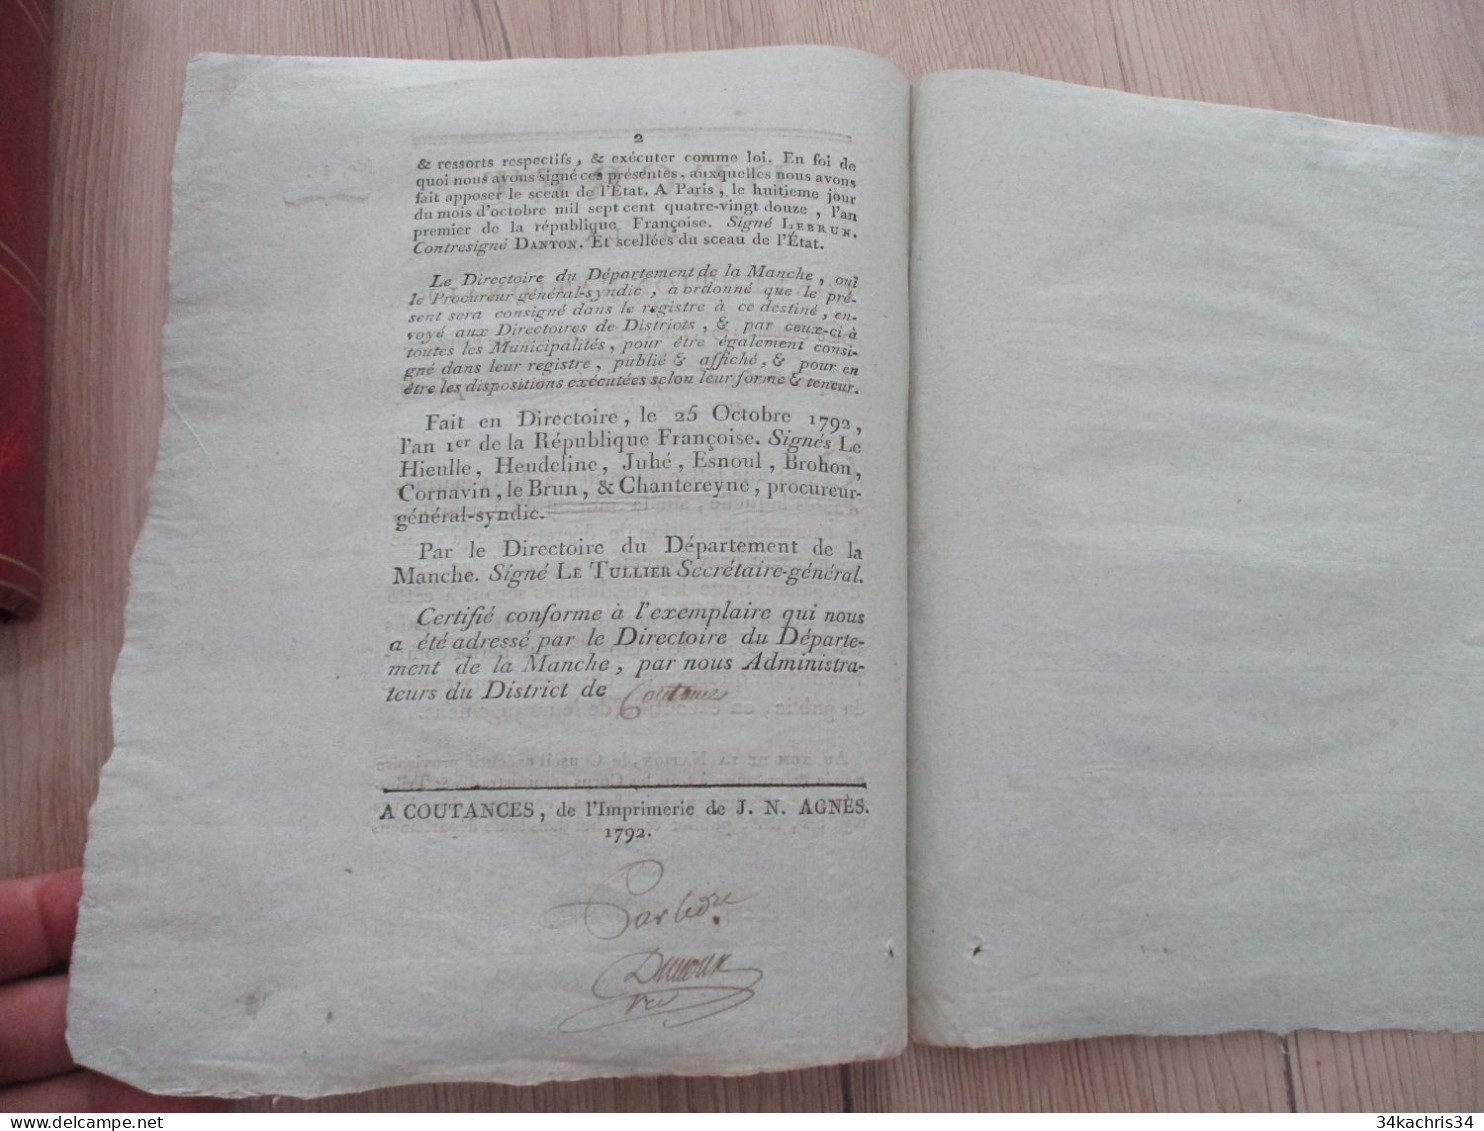 2
& ressorts respectifs, & exécuter comme loi. En foi de
quoi nous avons signé ces présentes, auxquelles nous avons
fait apposer le sceau de l'État. A Paris, le huitieme jour
du mois d'octobre mil sept cent quatre-vingt douze, l'an
premier de la république Françoise. Signé LEBRUN.
Contresigné DANTON. Et scellées du sceau de l'État.
Le Directoire du Département de la Manche, oui
le Procureur général-syndic, a ordonné que le pré-
sent sera consigné dans le registre à ce destiné, en-
voyé aux Directoires de Districts, & par ceux-ci à
toutes les Municipalités, pour être également consi-
gné dans leur registre, publié & affiché, & pour en
être les dispositions exécutées selon leur forme & teneur.
Fait en Directoire, le 25 Octobre 1792,
l'an 1er de la République Françoise. Signés Le
Hieulle, Heudeline, Juhé, Esnoul, Brohon,
Cornavin, le Brun, & Chantereyne, procureur-
général-syndic.
Par le Directoire du Département de la
Manche. Signé LE TULLIER Secrétaire-général.
Certifié conforme à l'exemplaire qui nous
a été adressé par le Directoire du Départe-
ment de la Manche, par nous Administra-
teurs du District de Coutances
A COUTANCES, de l'Imprimerie de J. N. AGNÈS.
1792.
34kachris34